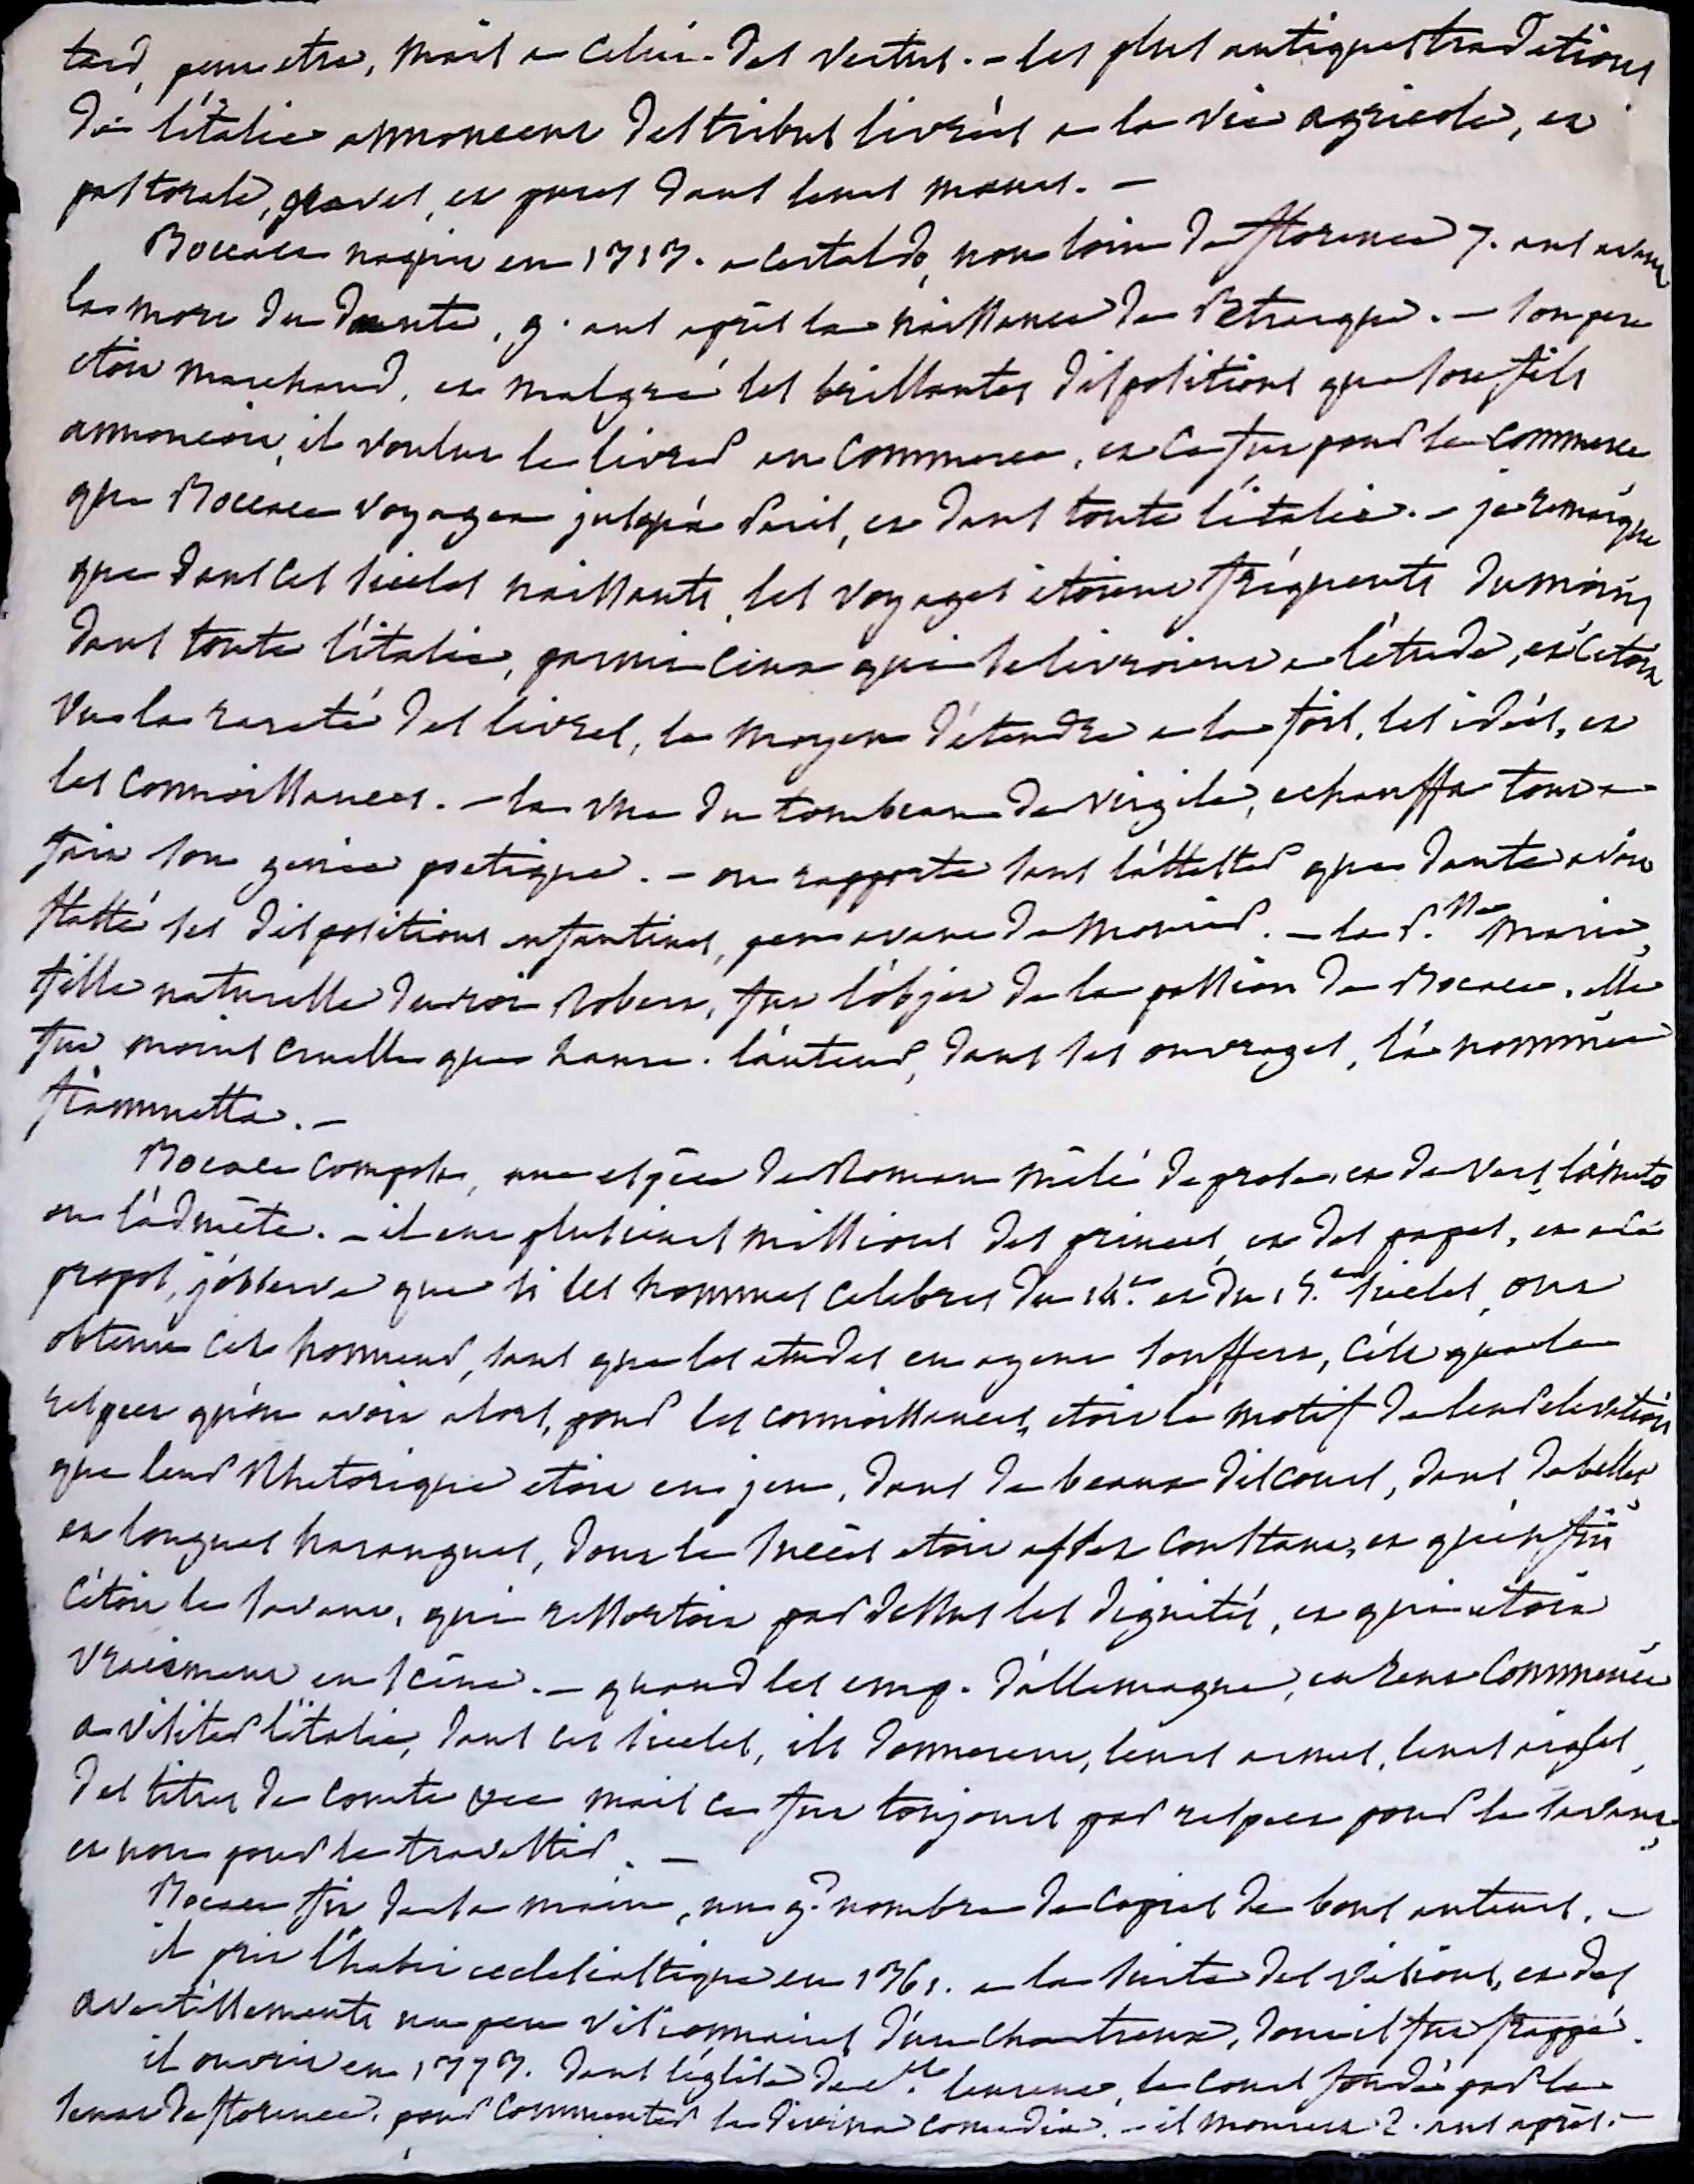 tard, peut etre, mais a celui des vertus. - les plus antiques traditions
de l'italie annoncent des tribus livrées a la vie agricole, et
pastorale, graves, et pures dans leurs mœurs. -
Boccace naquit en 1313. a certaldo, non loin de florence 7. ans avant
la mort du dante, 9. ans après la naissance de Petrarque. - son pere
etoit marchand, et malgré les brillantes dispositions que son fils
annoncoit, il voulut le livrer au commerce, et ce fut pour le commerce
que Boccace voyagea jusqu'à Paris, et dans toute l'italie. - je remarque
que dans ces siecles naissants, les voyages étoient fréquents du moins
dans toute l'italie, parmi ceux qui se livroient a l'étude, et c'étoit
vu la rareté des livres, le moyen d'étendre a la fois, les idées, et
les connoissances. - la vue du tombeau de virgile, echauffa tout a
fait son genie poetique. - on rapporte sans l'attester que dante avoit
flatté ses dispositions enfantines, peu avant de mourir. - la P.sse Marie,
fille naturelle du roi Robert, fut l'objet de la passion de Bocace. elle
fut moins cruelle que Laure. l'auteur, dans ses ouvrages, l'a nommée
fiammetta. -
Bocace composa, une espèce de Roman mêlé de prose, et de vers, l'ameto
ou l'admète. - il eut plusieurs missions des princes, et des papes, et a ce
propos, j'observe que si les hommes celebres du 14.e et du 15.e siecles, ont
obtenu cet honneur, sans que les etudes en ayent souffert, c'est que le
respect qu'on avoit alors, pour les connoissances, etoit le motif de leur elevation
que leur Rhetorique etoit en jeu, dans de beaux discours, dans de belles
et longues harangues, dont le succès etoit assez constant, et qu'enfin
c'étoit le savant, qui ressortoit par dessus les dignités, et qui etoit
vraiement en scène. - quand les emp. d'allemagne, eurent commencé
a visiter l'italie, dans ces siecles, ils donnerent, leurs armes, leurs aigles,
des titres de comte &c mais ce fut toujours par respect pour le savant
et non pour le travestir. -
Bocace fit de sa main, un g.d nombre de copies de bons auteurs. -
il prit l'habit ecclesiastique en 1361. a la suite des visions, et des
avertissements un peu visionnaires d'un chartreux, dont il fut frappé.
il ouvrit en 1373. dans l'église de St. laurent, le cours fondé par le
senat de florence, pour commenter la divina comedia. - il mourut 2. ans après. -